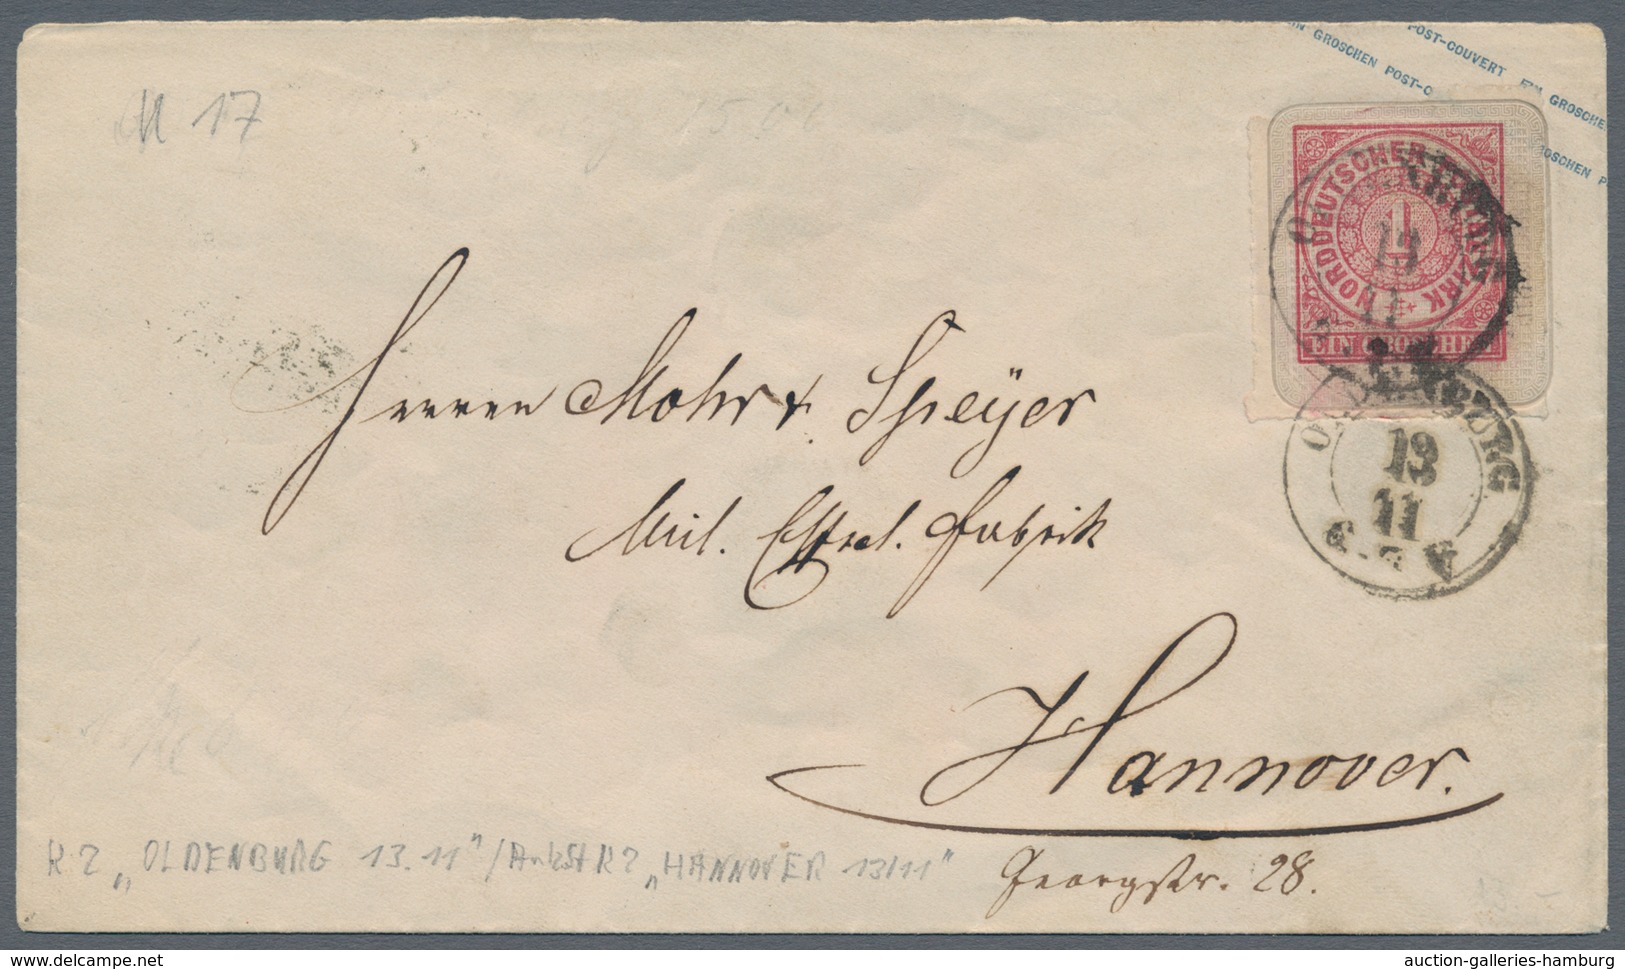 EIN GROSCHEN POST-C
POST-COUVERT EIN GROSCHE
OSCHEN P
M 17
NORDDEUTSCHER POSTBEZIRK
1
EIN GROSCHEN
OLDENBURG
13
11
Herren Mohr & Speyer
OLDENBURG
13
11
Mil. Effect. Fabrik
Hannover.
Georgstr. 28.
K2 „OLDENBURG 13.11"/AnkstK2 „HANNOVER 13/11"
delcampe.net
auction-galleries-hamburg